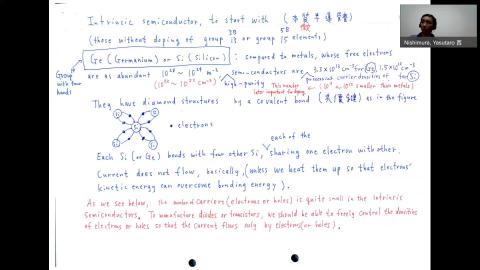 Intrinsic semiconductor, to start with (本質半導體)
3B 5B
(those without doping of group 13 or group 15 elements)
Ge (Germanium) or Si (Silicon) : compared to metals, whose free electrons
Group with four bonds
are as abundant 10²⁸ ~ 10²⁹ m⁻³ semi-conductors are
high-purity
(10²² ~ 10²³ cm⁻³)
This number later important to doping
They have diamond structures by a covalent bond as in the figure
Si
Si
Si
Si
Si
• electrons
each of the
Each Si (or Ge) bonds with four other Si, sharing one electron with other.
Current does not flow, basically, (unless we heat them up so that electrons'
kinetic energy can overcome bonding energy).
As we see below, the number of carriers (electrons or holes) is quite small in the intrinsic
semiconductors. To manufacture diodes or transistors, we should be able to freely control the densities
of electrons or holes so that the current flows only by electrons (or holes).
Nishimura, Yasutaro 西